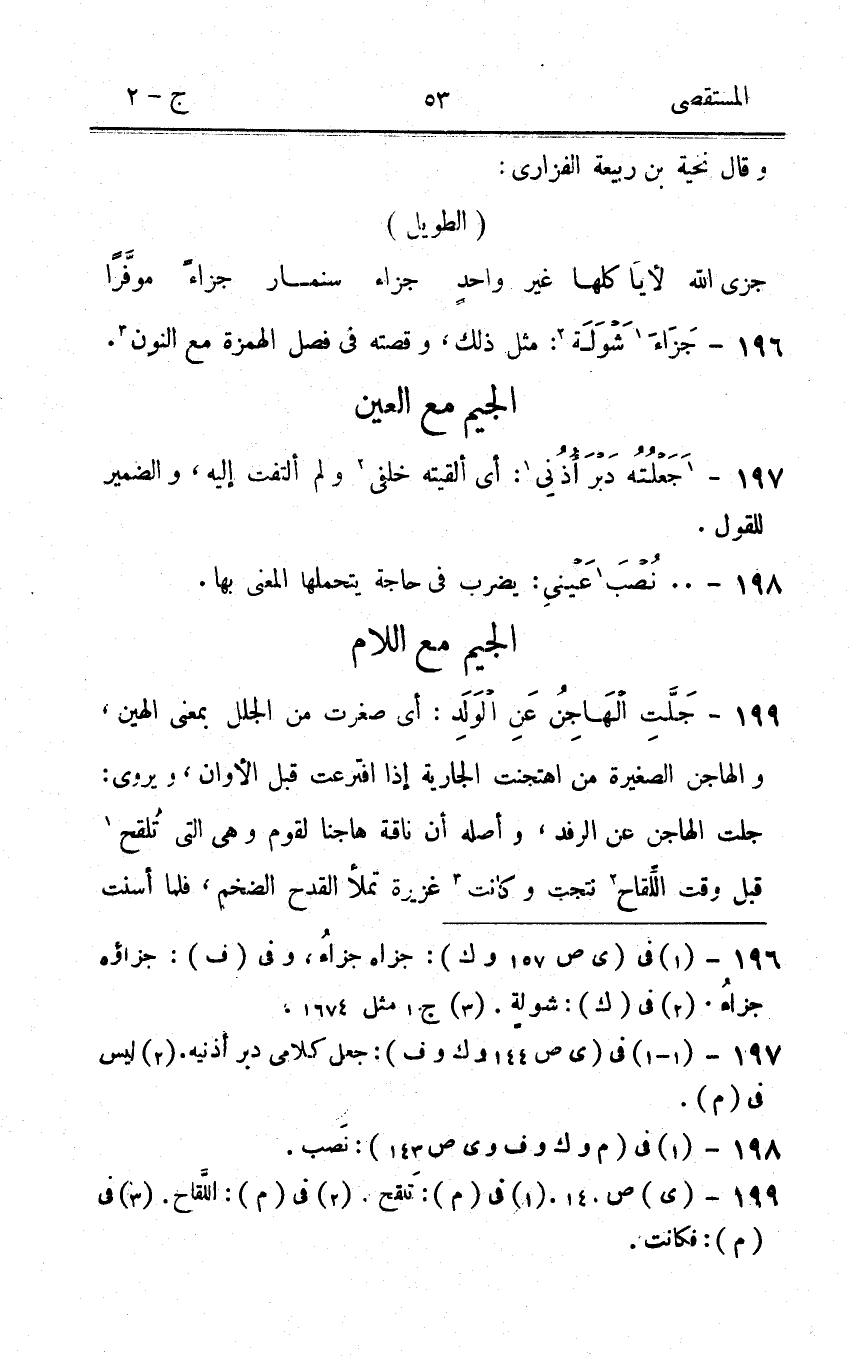 المستقصى ٥٣ ج – ٢
و قال نحية بن ربيعة الفزارى :
( الطويل )
جزى الله لأيًا كلها غير واحدٍ جزاء سنمـــار جزاءً موفَّرًا
١٩٦ – جَزَاءَ ١ شَوْلَةَ ٢: مثل ذلك ، و قصته فى فصل الهمزة مع النون ٣.
الجيم مع العين
١٩٧ – ١ جَعَلْتُهُ دُبُرَ أُذُنِي ١: أى ألقيته خلفى ٢ و لم ألتفت إليه ، و الضمير
للقول .
١٩٨ – ٠٠ نُصْبَ ١ عَيْنِي: يضرب فى حاجة يتحملها المعنى بها .
الجيم مع اللام
١٩٩ – جَلَّتِ الْهَاجِنُ عَنِ الْوَلَدِ : أى صغرت من الجلل بمعنى الهين ،
و الهاجن الصغيرة من اهتجنت الجارية إذا افترعت قبل الأوان ، و يروى:
جلت الهاجن عن الرفد ، و أصله أن ناقة هاجنا لقوم و هى التى تُلقح ١
قبل وقت اللِّقاح ٢ نتجت و كانت ٣ غزيرة تملأ القدح الضخم ، فلما أسنت
١٩٦ – (١) فى ( ى ص ١٥٧ و ك ) : جزاه جزاءُ ، و فى ( ف ) : جزاؤه
جزاءُ . (٢) فى ( ك ) : شولةٍ . (٣) ج ١ مثل ١٦٧٤ .
١٩٧ – (١-١) فى ( ى ص ١٤٤ و ك و ف ) : جعل كلامى دبر أذنيه. (٢) ليس
فى ( م ) .
١٩٨ – (١) فى ( م و ك و ف و ى ص ١٤٣ ) : نَصب .
١٩٩ – ( ى ) ص ١٤٠ . (١) فى ( م ) : تَلقح . (٢) فى ( م ) : اللَّقاح . (٣) فى
( م ) : فكانت .